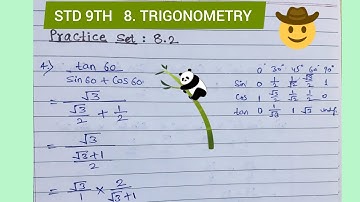 STD 9TH 8. TRIGONOMETRY
Practice Set : 8.2
4) tan 60
sin 60 + cos 60
= √3
√3/2 + 1/2
= √3
√3+1
2
= √3/1 × 2/√3+1
0° 30° 45° 60° 90°
Sin 0 1/2 1/√2 √3/2 1
Cos 1 √3/2 1/√2 1/2 0
tan 0 1/√3 1 √3